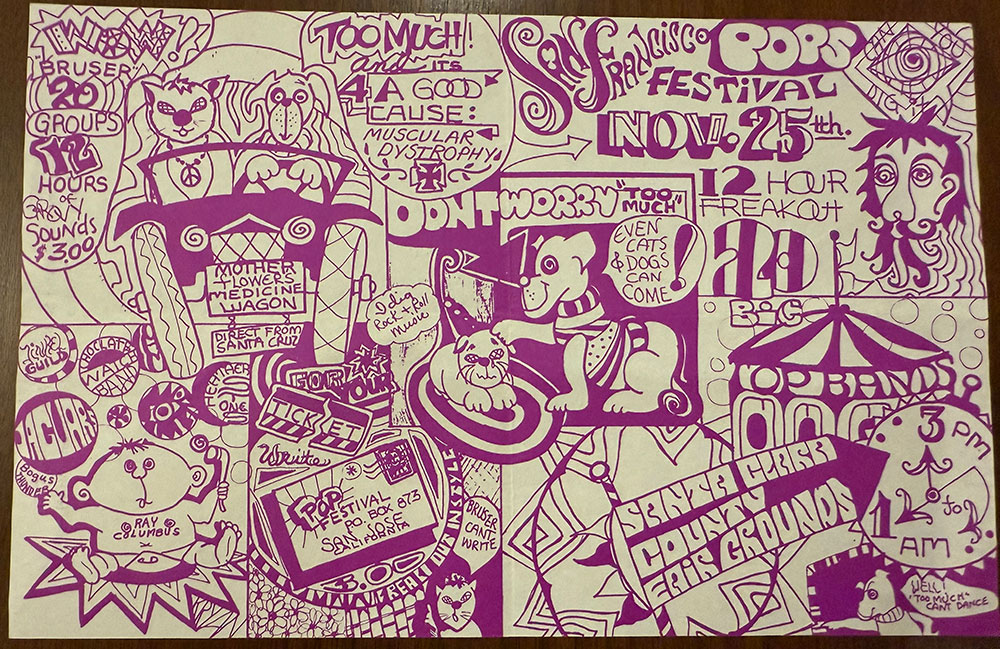 WHOW!?
"BRUSER"
20
GROUPS
12
HOURS
of
GROOVY
SOUNDS
$3.00
TOO MUCH!
and ITS
4 A GOOD
CAUSE:
MUSCULAR
DYSTROPHY
SAN FRANCISCO POPS
FESTIVAL
NOV. 25th.
12 HOUR
FREAKOUT
20
DONT WORRY "TOO
MUCH"
EVEN
CATS
& DOGS
CAN
COME!
MOTHER
FLOWERS
MEDICINE
WAGON
DIRECT FROM
SANTA CRUZ
Rock & Roll
Music
GUILD
CHOCLATTE
WATCH
BAND
JAGUARS
BOGUS
THUNDER
RAY
COLUMBUS
FOR
YOUR
TICKET
Write
POP
FESTIVAL
P.O. BOX 873
SAN JOSE
3.00
BRUSER
CANT
WRITE
BIG
TOP BANDS
SANTA CLARA
COUNTY
FAIR GROUNDS
3 PM
12 to 3
1
AM
WELL!
"TOO MUCH"
CANT DANCE